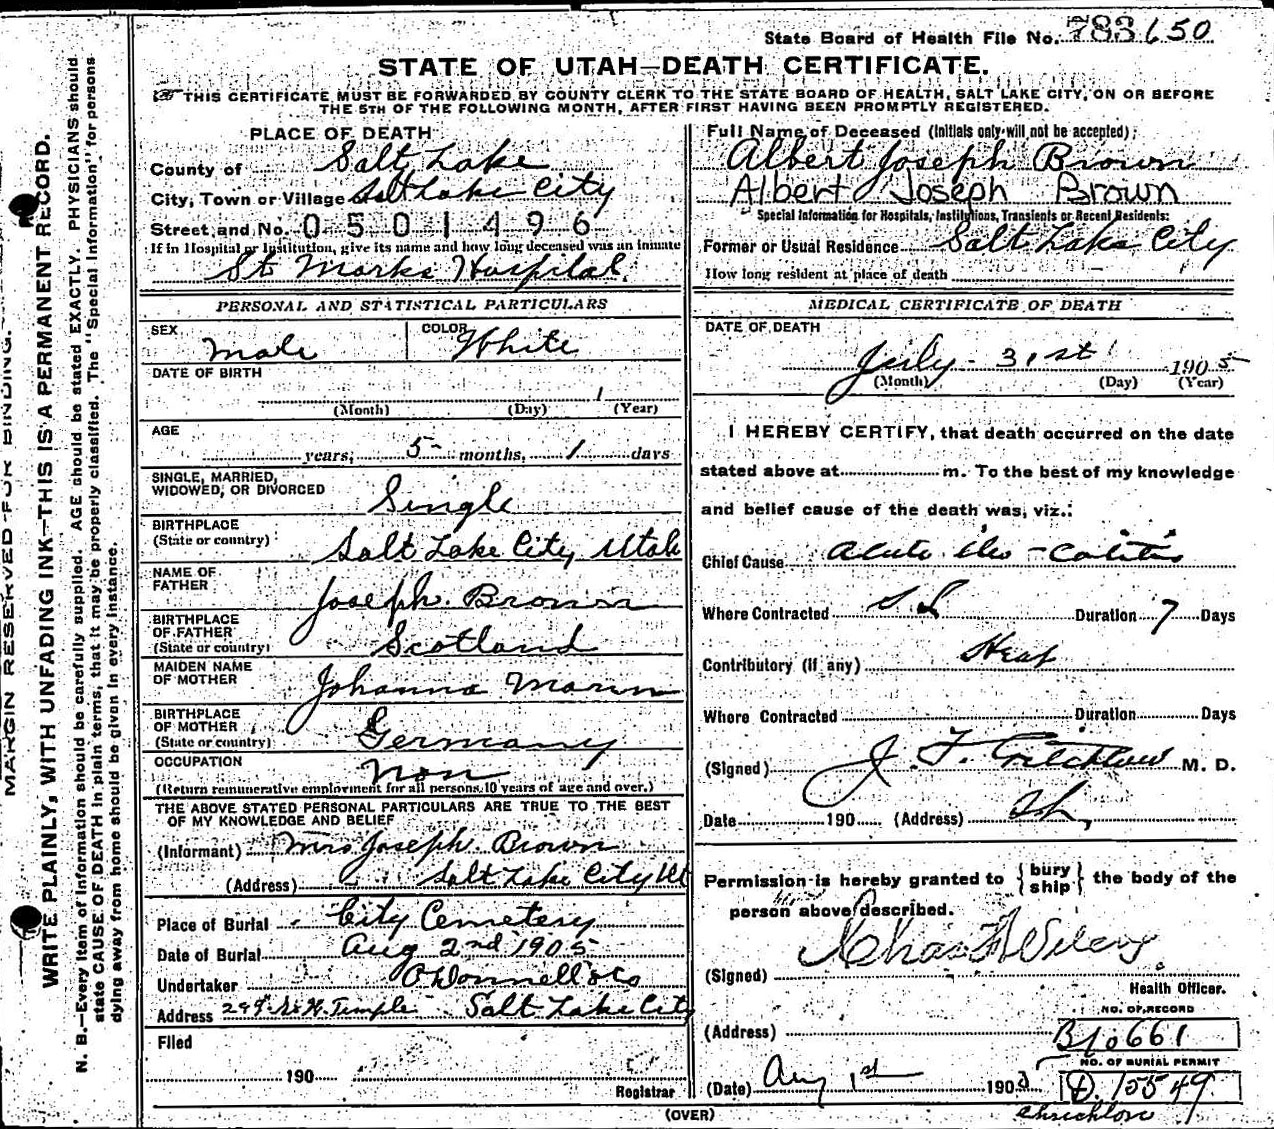 State Board of Health File No. 783650
STATE OF UTAH—DEATH CERTIFICATE.
THIS CERTIFICATE MUST BE FORWARDED BY COUNTY CLERK TO THE STATE BOARD OF HEALTH, SALT LAKE CITY, ON OR BEFORE
THE 5TH OF THE FOLLOWING MONTH, AFTER FIRST HAVING BEEN PROMPTLY REGISTERED.
MARGIN RESERVED FOR BINDING.
WRITE PLAINLY, WITH UNFADING INK—THIS IS A PERMANENT RECORD.
N. B.—Every item of information should be carefully supplied. AGE should be stated EXACTLY. PHYSICIANS should
state CAUSE OF DEATH in plain terms, that it may be properly classified. The "Special Information" for persons
dying away from home should be given in every instance.
PLACE OF DEATH
County of Salt Lake
City, Town or Village Salt Lake City
Street and No. 0501496
If in Hospital or Institution, give its name and how long deceased was an inmate
St Marks Hospital
PERSONAL AND STATISTICAL PARTICULARS
SEX Male
COLOR White
DATE OF BIRTH
1
(Month) (Day) (Year)
AGE
years, 5 months, 1 days
SINGLE, MARRIED,
WIDOWED, OR DIVORCED Single
BIRTHPLACE
(State or country) Salt Lake City Utah
NAME OF
FATHER Joseph Brown
BIRTHPLACE
OF FATHER
(State or country) Scotland
MAIDEN NAME
OF MOTHER Johanna
BIRTHPLACE
OF MOTHER
(State or country) Germany
OCCUPATION Non
(Return remunerative employment for all persons 10 years of age and over.)
THE ABOVE STATED PERSONAL PARTICULARS ARE TRUE TO THE BEST
OF MY KNOWLEDGE AND BELIEF
(Informant) Mrs Joseph Brown
(Address) Salt Lake City Ut
Place of Burial City Cemetery
Date of Burial Aug 2nd 1905
Undertaker O'Donnell & Co
Address So. W. Temple Salt Lake City
Filed
190
Registrar
Full Name of Deceased (Initials only will not be accepted):
Albert Joseph Brown
Albert Joseph Brown
Special Information for Hospitals, Institutions, Transients or Recent Residents:
Former or Usual Residence Salt Lake City
How long resident at place of death
MEDICAL CERTIFICATE OF DEATH
DATE OF DEATH
July - 31st 1905
(Month) (Day) (Year)
I HEREBY CERTIFY, that death occurred on the date
stated above at m. To the best of my knowledge
and belief cause of the death was, viz.:
Chief Cause Acute ileo-colitis
Where Contracted S. L Duration 7 Days
Contributory (if any) Heat
Where Contracted Duration Days
(Signed) J. F. Critchlow M. D.
Date 190 (Address)
Permission is hereby granted to { bury
ship } the body of the
person above described.
(Signed) Chas F Wilcox
Health Officer.
(Address)
NO. OF RECORD
B/o661
(Date) Aug 1st 190
NO. OF BURIAL PERMIT
D. 15549
Chrichlow
(OVER)